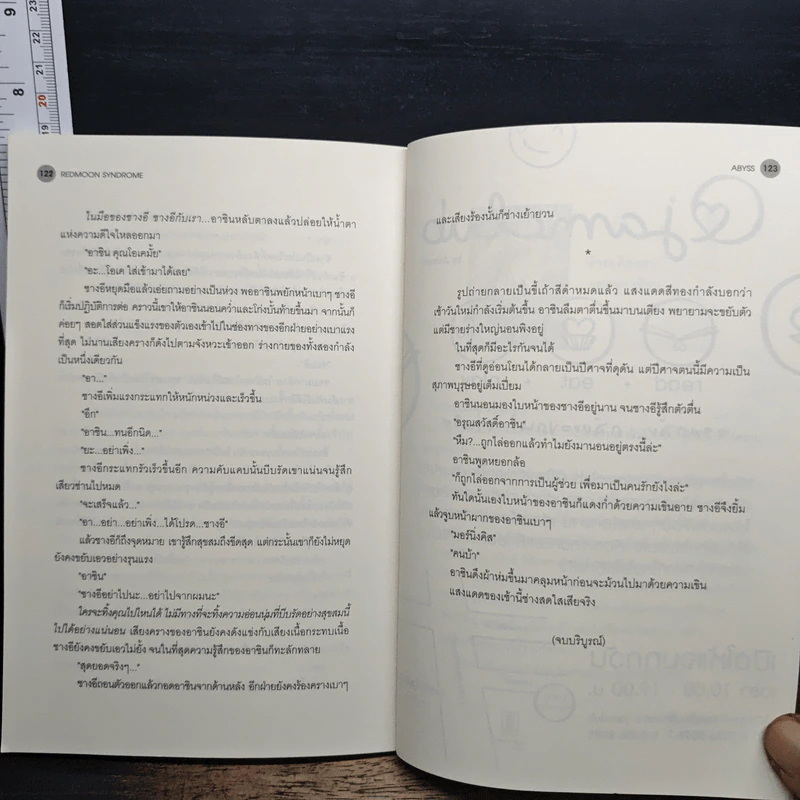 9
8
23
22
21
20
19
122 REDMOON SYNDROME
ในมือของซางอี ซางอีกับเรา...อาซินหลับตาลงแล้วปล่อยให้น้ำตา
แห่งความดีใจไหลออกมา
"อาซิน คุณโอเคมั้ย"
"อะ...โอเค ใส่เข้ามาได้เลย"
ซางอีหยุดมือแล้วเอ่ยถามอย่างเป็นห่วง พออาซินพยักหน้าเบาๆ ซางอี
ก็เริ่มปฏิบัติการต่อ คราวนี้เขาให้อาซินนอนคว่ำและโก่งบั้นท้ายขึ้นมา จากนั้นก็
ค่อยๆ สอดใส่ส่วนแข็งแรงของตัวเองเข้าไปในช่องทางของอีกฝ่ายอย่างเบาแรง
ที่สุด ไม่นานเสียงครางก็ดังไปตามจังหวะเข้าออก ร่างกายของทั้งสองกำลัง
เป็นหนึ่งเดียวกัน
"อา..."
ซางอีเพิ่มแรงกระแทกให้หนักหน่วงและเร็วขึ้น
"อึก"
"อาซิน...ทนอีกนิด..."
"ยะ...อย่าเพิ่ง..."
ซางอีกระแทกรัวเร็วขึ้นอีก ความคับแคบนั้นบีบรัดเขาแน่นจนรู้สึก
เสียวซ่านไปหมด
"จะเสร็จแล้ว..."
"อา...อย่า...อย่าเพิ่ง...ได้โปรด...ซางอี"
แล้วซางอีก็ถึงจุดหมาย เขารู้สึกสุขสมถึงขีดสุด แต่กระนั้นเขาก็ยังไม่หยุด
ยังคงขยับเอวอย่างรุนแรง
"อาซิน"
"ซางอีอย่าไปนะ...อย่าไปจากผมนะ"
ใครจะทิ้งคุณไปไหนได้ ไม่มีทางที่จะทิ้งความอ่อนนุ่มที่บีบรัดอย่างสุขสมนี้
ไปได้อย่างแน่นอน เสียงครางของอาซินยังคงดังแข่งกับเสียงเนื้อกระทบเนื้อ
ซางอียังคงขยับเอวไม่ยั้ง จนในที่สุดความรู้สึกของอาซินก็ทะลักทลาย
"สุดยอดจริงๆ..."
ซางอีถอนตัวออกแล้วกอดอาซินจากด้านหลัง อีกฝ่ายยังคงร้องครางเบาๆ
ABYSS 123
และเสียงร้องนั้นก็ช่างเย้ายวน
*
รูปถ่ายกลายเป็นขี้เถ้าสีดำหมดแล้ว แสงแดดสีทองกำลังบอกว่า
เช้าวันใหม่กำลังเริ่มต้นขึ้น อาซินลืมตาตื่นขึ้นมาบนเตียง พยายามจะขยับตัว
แต่มีชายร่างใหญ่นอนพิงอยู่
ในที่สุดก็มีอะไรกันจนได้
ซางอีที่ดูอ่อนโยนได้กลายเป็นปีศาจที่ดุดัน แต่ปีศาจตนนี้มีความเป็น
สุภาพบุรุษอยู่เต็มเปี่ยม
อาซินนอนมองใบหน้าของซางอีอยู่นาน จนซางอีรู้สึกตัวตื่น
"อรุณสวัสดิ์อาซิน"
"หืม?...ถูกไล่ออกแล้วทำไมยังมานอนอยู่ตรงนี้ล่ะ"
อาซินพูดหยอกล้อ
"ก็ถูกไล่ออกจากการเป็นผู้ช่วย เพื่อมาเป็นคนรักยังไงล่ะ"
ทันใดนั้นเองใบหน้าของอาซินก็แดงก่ำด้วยความเขินอาย ซางอีจึงยิ้ม
แล้วจูบหน้าผากของอาซินเบาๆ
"มอร์นิ่งคิส"
"คนบ้า"
อาซินดึงผ้าห่มขึ้นมาคลุมหน้าก่อนจะม้วนไปมาด้วยความเขิน
แสงแดดของเช้านี้ช่างสดใสเสียจริง
(จบบริบูรณ์)